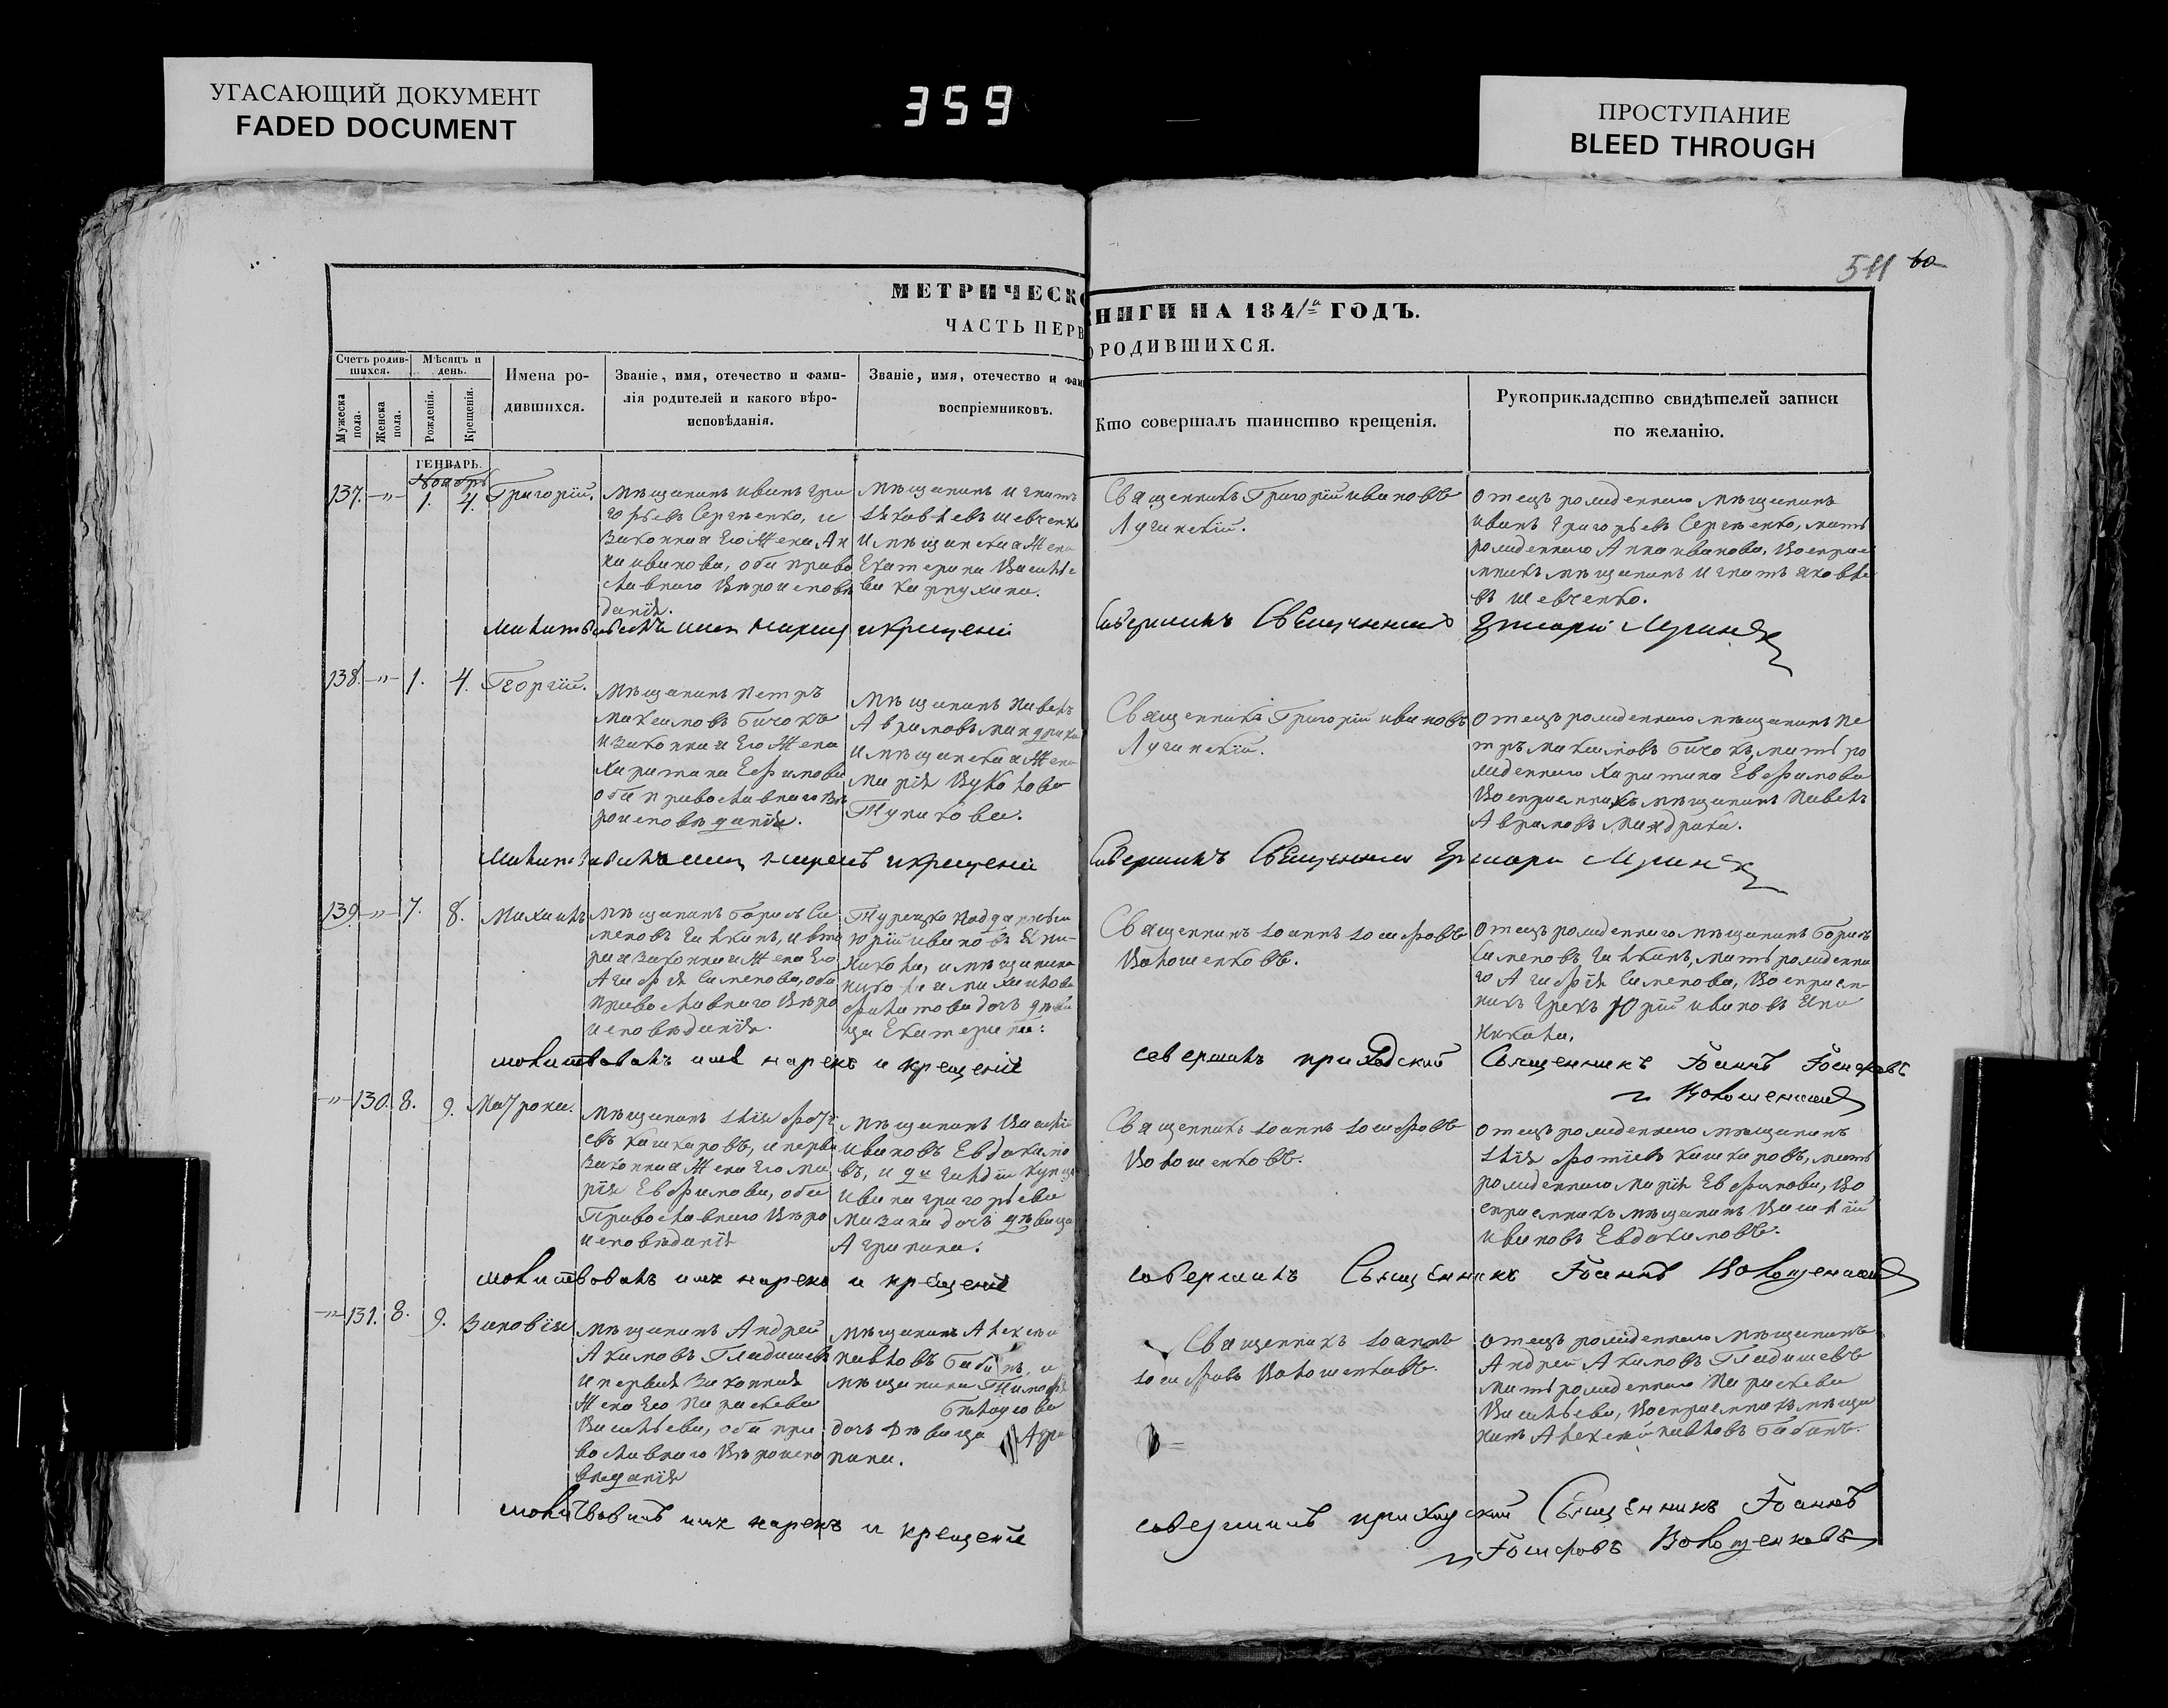 УГАСАЮЩИЙ ДОКУМЕНТ
FADED DOCUMENT
359
ПРОСТУПАНИЕ
BLEED THROUGH
511 60
МЕТРИЧЕСКО
НИГИ НА 1841го ГОДЪ.
ЧАСТЬ ПЕРВ
О РОДИВШИХСЯ.
Счетъ родив-
шихся.
Мѣсяцъ и
день.
Мужеска
пола.
Женска
пола.
Рожденія.
Крещенія.
Имена ро-
дившихся.
Званіе, имя, отечество и фами-
лія родителей и какого вѣро-
исповѣданія.
Званіе, имя, отечество и фам
воспріемниковъ.
Кто совершалъ таинство крещенія.
Рукоприкладство свидѣтелей записи
по желанію.
ГЕНВАРЬ.
Ноябрь
137. -"- 1. 4. Григорій.
Мѣщанинъ Иванъ Гри
горьевъ Сергѣенко, и
Законная Его Жена Ан
на Иванова, оба право
славнаго Вѣроисповѣ
данія.
Мѣщанинъ Игнатъ
Яковлевъ Шевченко
И мѣщанская Жена
Екатерина Василье
ва Карпухина.
Священникъ Григорій Ивановъ
Лучинскій.
Отецъ рожденнаго Мѣщанинъ
Иванъ Григорьевъ Сергѣенко, мать
рожденнаго Анна Иванова, Воспріе
мникъ мѣщанинъ Игнатъ Яковле
въ Шевченко.
и крещеніе
Совершилъ Священникъ
138. -"- 1. 4. Георгій.
Мѣщанинъ Петръ
Максимовъ Бичокъ
И Законная Его Жена
Харитина Ефимова
оба православнаго Вѣ
роисповѣданія.
Мѣщанинъ Павелъ
Аврамовъ Мандрика
И мѣщанская Жена
Марія Вуколова
Тупикова.
Священникъ Григорій Ивановъ
Лучинскій.
Отецъ рожденнаго мѣщанинъ Пе
тръ Максимовъ Бичокъ, мать ро
жденнаго Харитина Евфимова
Воспріемникъ мѣщанинъ Павелъ
Аврамовъ Мандрика.
и крещеніе
Совершилъ Священникъ
139. -"- 7. 8. Михаилъ
Мѣщанинъ Борисъ Си
меновъ Галкинъ, и вто
рая Законная Жена Его
Агафія Сименова, оба
Православнаго Вѣро
исповѣданія.
Турецко Подданный
Юрій Ивановъ
Никола, и мѣщанина
Николая Михайлова
Филатова дочь дѣви
ца Екатерина:
Священникъ Іоаннъ Іосифовъ
Волошенковъ.
Отецъ рожденнаго мѣщанинъ Борисъ
Сименовъ Галкинъ, мать рожденна
го Агафія Сименова, Воспріем-
никъ Грекъ Юрій Ивановъ
Никола,
молитвовалъ имя нарекъ и крещеніе
совершилъ приходскій Священникъ Іоаннъ Іосифовъ
Волошенковъ
-"- 130. 8. 9. Матрона.
Мѣщанинъ Илія Фоті
евъ Кашкаровъ, и перва
Законная Жена Его Ма
рія Евфимова, оба
Православнаго Вѣро
исповѣданія
Мѣщанинъ Василій
Ивановъ Евдокимо
въ, и 3й Гильдіи купца
Ивана Григорьева
Мазана дочь дѣвица
Агрипина:
Священникъ Іоаннъ Іосифовъ
Волошенковъ.
Отецъ рожденнаго мѣщанинъ
Илія Фотіевъ Кашкаровъ, мать
рожденнаго Марія Евфимова, Во
спріемникъ мѣщанинъ Василій
Ивановъ Евдокимовъ.
молитвовалъ имя нарекъ и крещеніе
совершилъ Священникъ Іоаннъ Волошенковъ
-"- 131. 8. 9. Зиновія
Мѣщанинъ Андрей
Акимовъ Гладишевъ
И первая Законная
Жена Его Параскева
Васильева, оба пра
вославнаго Вѣроиспо
вѣданія
Мѣщанинъ Алексѣй
Павловъ Бабинъ, и
мѣщанина Тимофея
Бѣлоусова
дочь Дѣвица Агри
пина.
Священникъ Іоаннъ
Іосифовъ Волошенковъ.
Отецъ рожденнаго Мѣщанинъ
Андрей Акимовъ Гладишевъ
Мать рожденнаго Параскева
Васильева, Воспріемникъ мѣща
нинъ Алексѣй Павловъ Бабинъ.
молитвовалъ имя нарекъ и крещеніе
совершилъ приходскій Священникъ Іоаннъ
Іосифовъ Волошенковъ